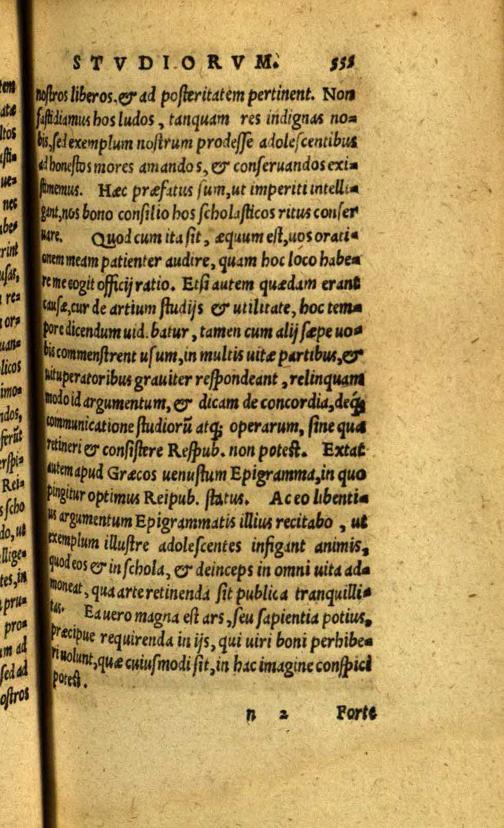 tem
atæ
ltos
ue=
nes
rint
usas,
re=
or=
uan=
licos
imo=
ndos,
ferūt
erspi=
Rei=
scho
do, ut
llige=
tes, in
pru=
pro=
m ad
sed ad
ostros
STVDIORVM.
nostros liberos, & ad posteritatem pertinent. Non
fastidiamus hos ludos, tanquam res indignas no=
bis, sed exemplum nostrum prodesse adolescentibus
ad honestos mores amandos, & conseruandos exi=
stimemus. Hæc præfatus sum, ut imperiti intelli=
gant, nos bono consilio hos scholasticos ritus conser
uare. Quod cum ita sit, æquum est, uos orati=
onem meam patienter audire, quam hoc loco habe=
re me eogit officij ratio. Etsi autem quædam erant
causæ, cur de artium studijs & utilitate, hoc tem=
pore dicendum uid.batur, tamen cum alij sæpe uo=
bis commenstrent usum, in multis uitæ partibus, &
uituperatoribus grauiter respondeant, relinquam
modo id argumentum, & dicam de concordia, deq́;
communicatione studiorū atq; operarum, sine qua
retineri & consistere Respub. non potest. Extat
autem apud Græcos uenustum Epigramma, in quo
pingitur optimus Reipub. status. Ac eo libenti=
us argumentum Epigrammatis illius recitabo, ut
exemplum illustre adolescentes infigant animis,
quod eos & in schola, & deinceps in omni uita ad=
moneat, qua arte retinenda sit publica tranquilli=
tas. Ea uero magna est ars, seu sapientia potius,
præcipue requirenda in ijs, qui uiri boni perhibe=
ri uolunt, quæ cuiusmodi sit, in hac imagine conspici
potest.
n 2 Forte